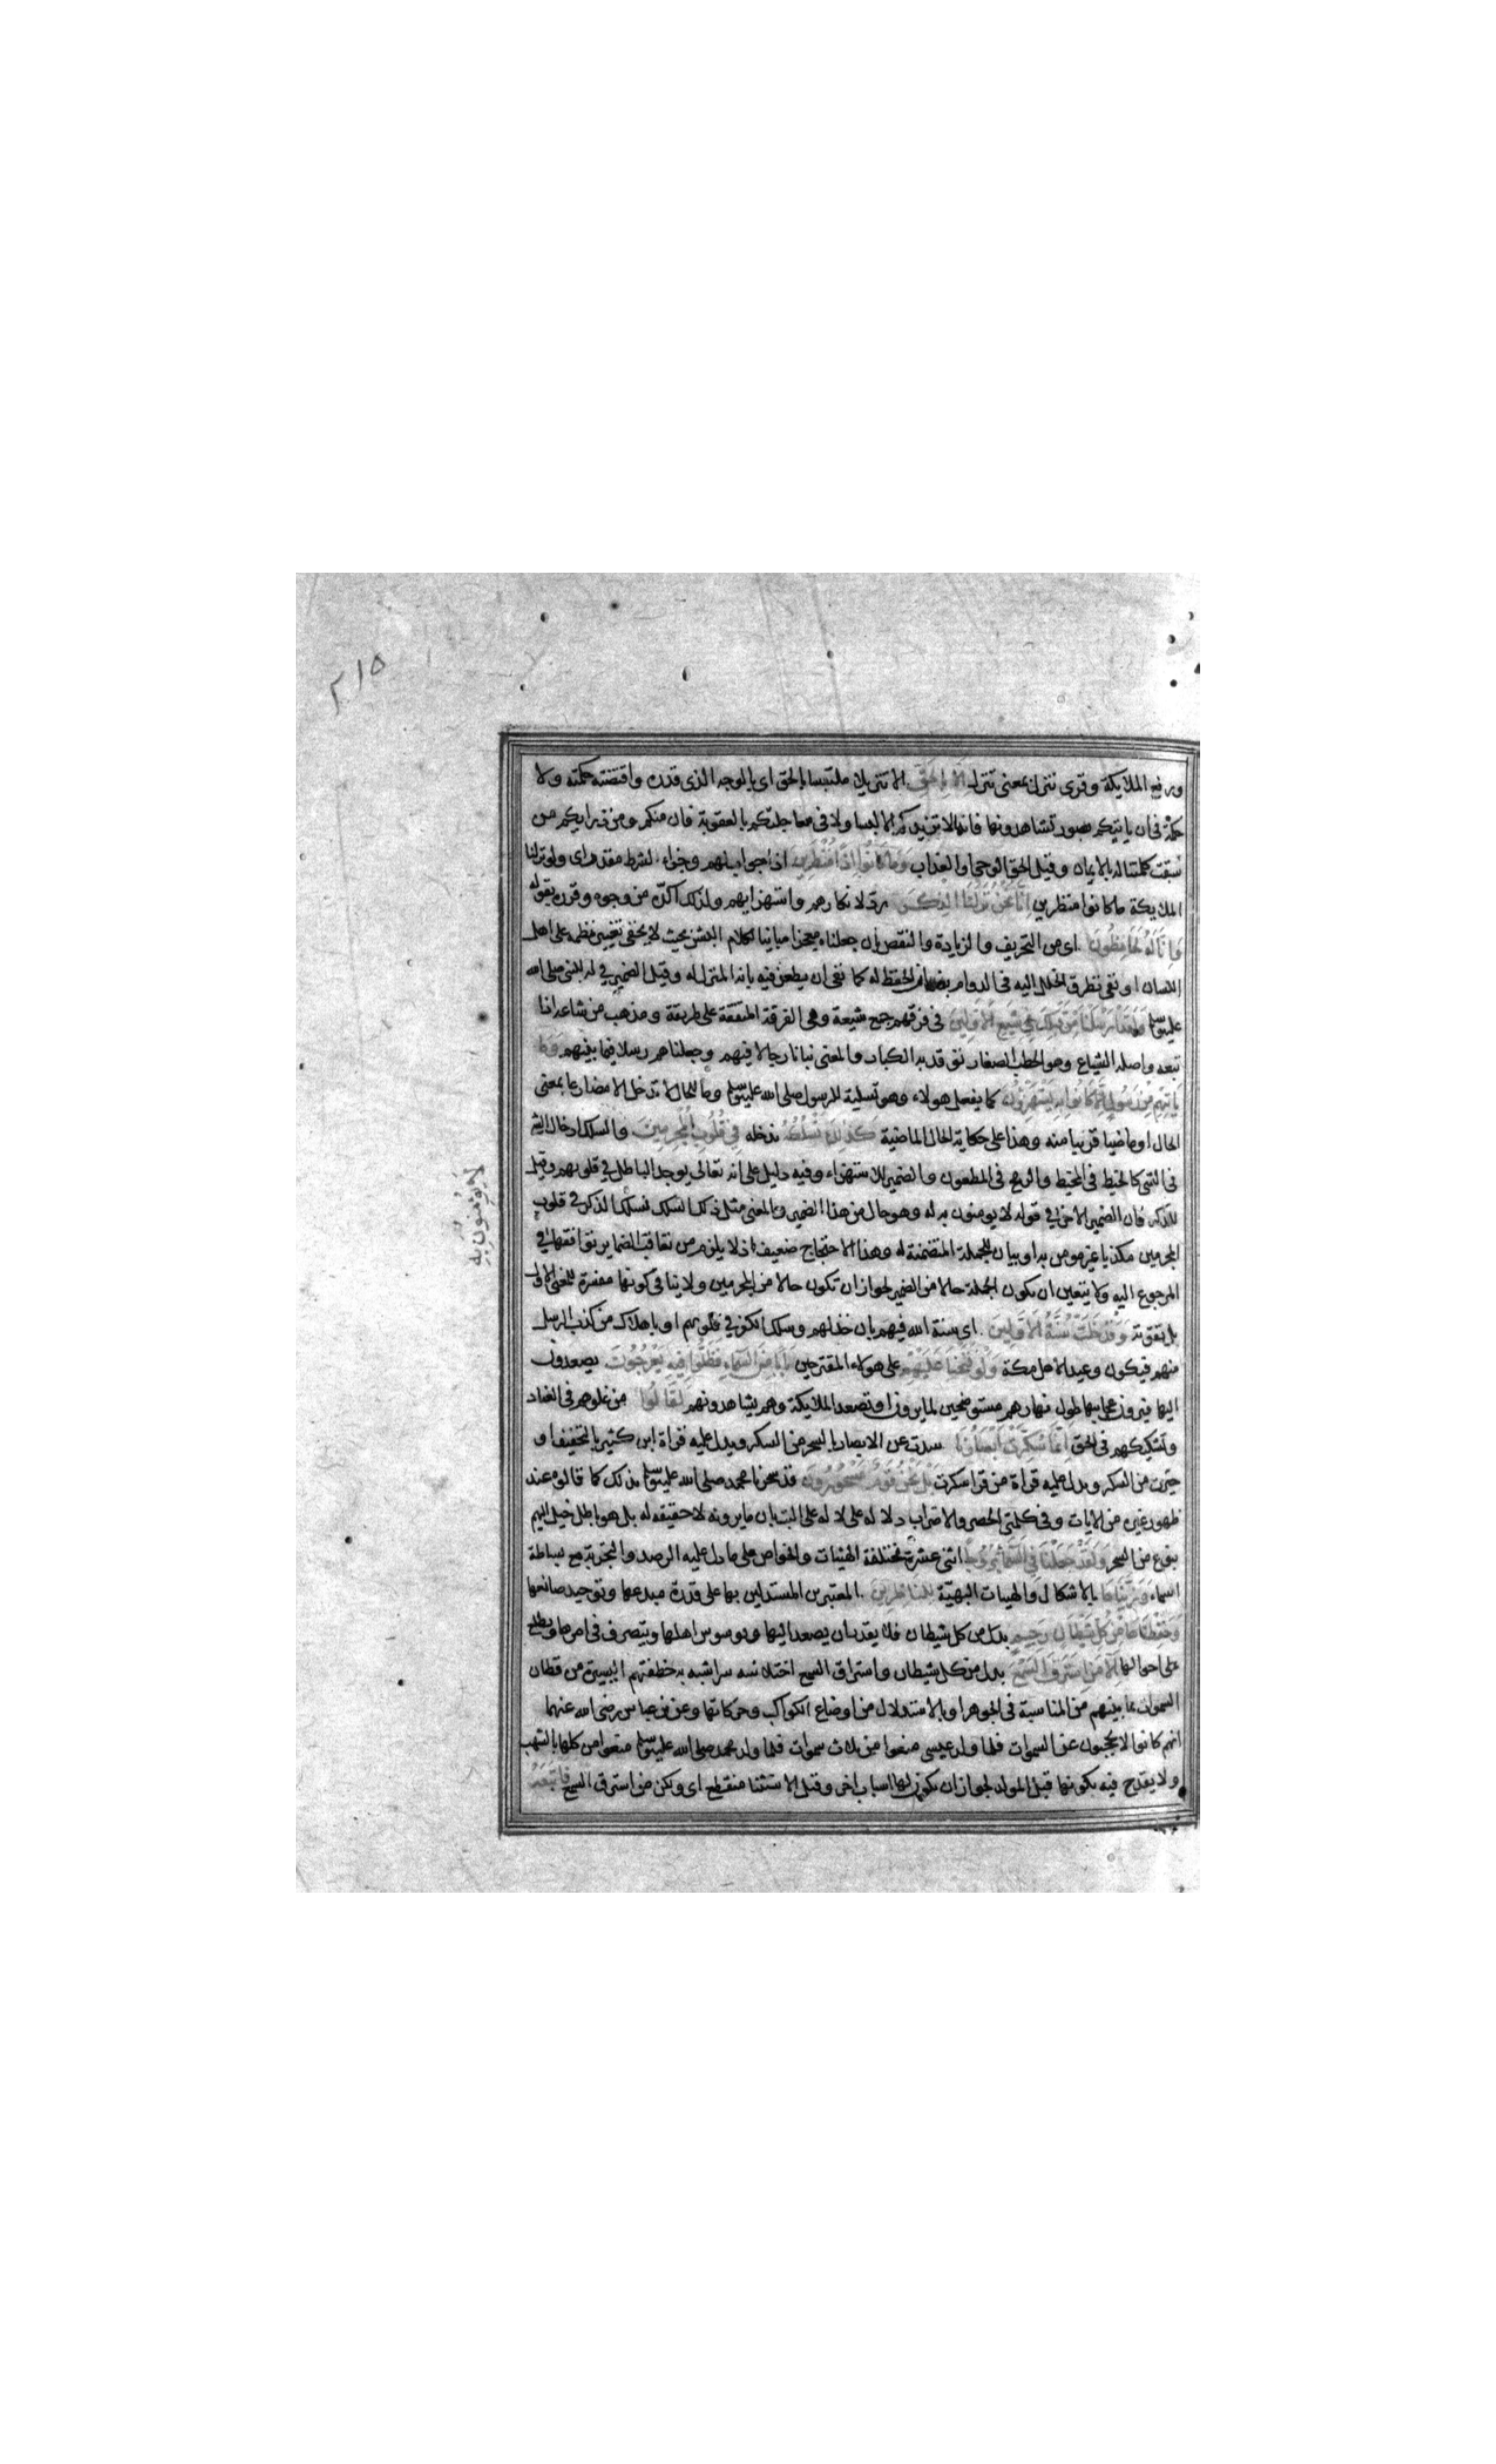 ٢١٥
ورفع الملايكة وقرى تنزل بمعنى تتنزل الا بالحق الا تنزيلا ملتبسا بالحق اى بالوجه الذى قدره واقتضته حكمته ولا
حكمة فى ان ياتيكم بصور تشاهدونها فانها لا تزيدكم الا لبسا ولا فى معاجلتكم بالعقوبة فان منكم ومن ذراريكم من
سبقت كلمتنا له بالايمان وقيل الحق الوحى او العذاب وما كانوا اذا منظرين اذا جواب لهم وجزاء لشرط مقدر اى ولو نزلنا
الملايكة ما كانوا منظرين انا نحن نزلنا الذكر رد لانكارهم واستهزايهم ولذلك اكده من وجوه وقرره بقوله
وانا له لحافظون اى من التحريف والزيادة والنقص بان جعلناه معجزا مباينا لكلام البشر بحيث لا يخفى تغيير نظمه على اهل
اللسان او نفى تطرق الخلل اليه فى الدوام بضمان الحفظ له كما نفى ان يطعن فيه بانه المنزل له وقيل الضمير فى له للنبى صلى الله
عليه وسلم ولقد ارسلنا من قبلك فى شيع الاولين فى فرقهم جمع شيعة وهى الفرقة المتفقة على طريقة ومذهب من شاعه اذا
تبعه واصله الشياع وهو الحطب الصغار توقد به الكبار والمعنى نبانا رجالا فيهم وجعلناهم رسلا فيما بينهم وما
ياتيهم من رسول الا كانوا به يستهزؤن كما يفعل هولاء وهو تسلية للرسول صلى الله عليه وسلم وما للحال لا تدخل الا مضارعا بمعنى
الحال او ماضيا قريبا منه وهذا على حكاية الحال الماضية كذلك نسلكه ندخله فى قلوب المجرمين والسلك ادخال الشى
فى الشى كالخيط فى المخيط والرمح فى المطعون والضمير للاستهزاء وفيه دليل على انه تعالى يوجد الباطل فى قلوبهم وقيل
للذكر فان الضمير الاخر فى قوله لا يومنون به له وهو حال من هذا الضمير والمعنى مثل ذلك السلك نسلك الذكر فى قلوب
المجرمين مكذبا غير مومن به او بيان للجملة المتضمنة له وهذا الاحتجاج ضعيف اذ لا يلزم من تعاقب الضماير توافقها فى
المرجوع اليه ولا يتعين ان يكون الجملة حالا من الضمير لجواز ان تكون حالا من المجرمين ولا ينافى كونها مفسرة للمعنى الاول
بل يقويه وقد خلت سنة الاولين اى سنة الله فيهم بان خذلهم وسلك الكفر فى قلوبهم او باهلاك من كذب الرسل
منهم فيكون وعيدا لاهل مكة ولو فتحنا عليهم على هولاء المقترحين بابا من السماء فظلوا فيه يعرجون يصعدون
اليها فيرون عجايبها طول نهارهم مستوضحين لما يرون او تصعد الملايكة وهم يشاهدونهم لقالوا من غلوهم فى العناد
وتشكيكهم فى الحق انما سكرت ابصارنا سدت عن الابصار بالسحر من السكر ويدل عليه قراة ابن كثير بالتخفيف او
حيرت من السكر ويدل عليه قراة من قرا سكرت بل نحن قوم مسحورون قد سحرنا محمد صلى الله عليه وسلم بذلك كما قالوه عند
ظهور غيره من الايات وفى كلمتى الحصر والاضراب دلاله على لا له على البت بان ما يرونه لا حقيقه له بل هو باطل خيل اليهم
بنوع من السحر ولقد جعلنا فى السماء بروجا اثنى عشرة مختلفة الهيئات والخواص على ما دل عليه الرصد والتجربة مع بساطة
السماء وزيناها بالاشكال والهيات البهية للناظرين المعتبرين المستدلين بها على قدرة مبدعها وتوحيد صانعها
وحفظناها من كل شيطان رجيم بدل من كل شيطان فلا يقدر ان يصعد اليها ويوسوس اهلها ويتصرف فى امرها ويطلع
على احوالها الا من استرق السمع بدل من كل شيطان واستراق السمع اختلاسه سرا شبه به خطفتهم اليسيرة من قطان
السموات بما بينهم من المناسبة فى الجوهر او بالاستدلال من اوضاع الكواكب وحركاتها وعن بن عباس رضى الله عنهما
انهم كانوا لا يحجبون عن السموات فلما ولد عيسى منعوا من ثلاث سموات فلما ولد محمد صلى الله عليه وسلم منعوا من كلها بالشهب
ولا يقدح فيه بكونها قبل المولد لجواز ان يكون لها اسباب اخر وقيل الاستثنا منقطع اى ولكن من استرق السمع فاتبعه
لا يومنون به